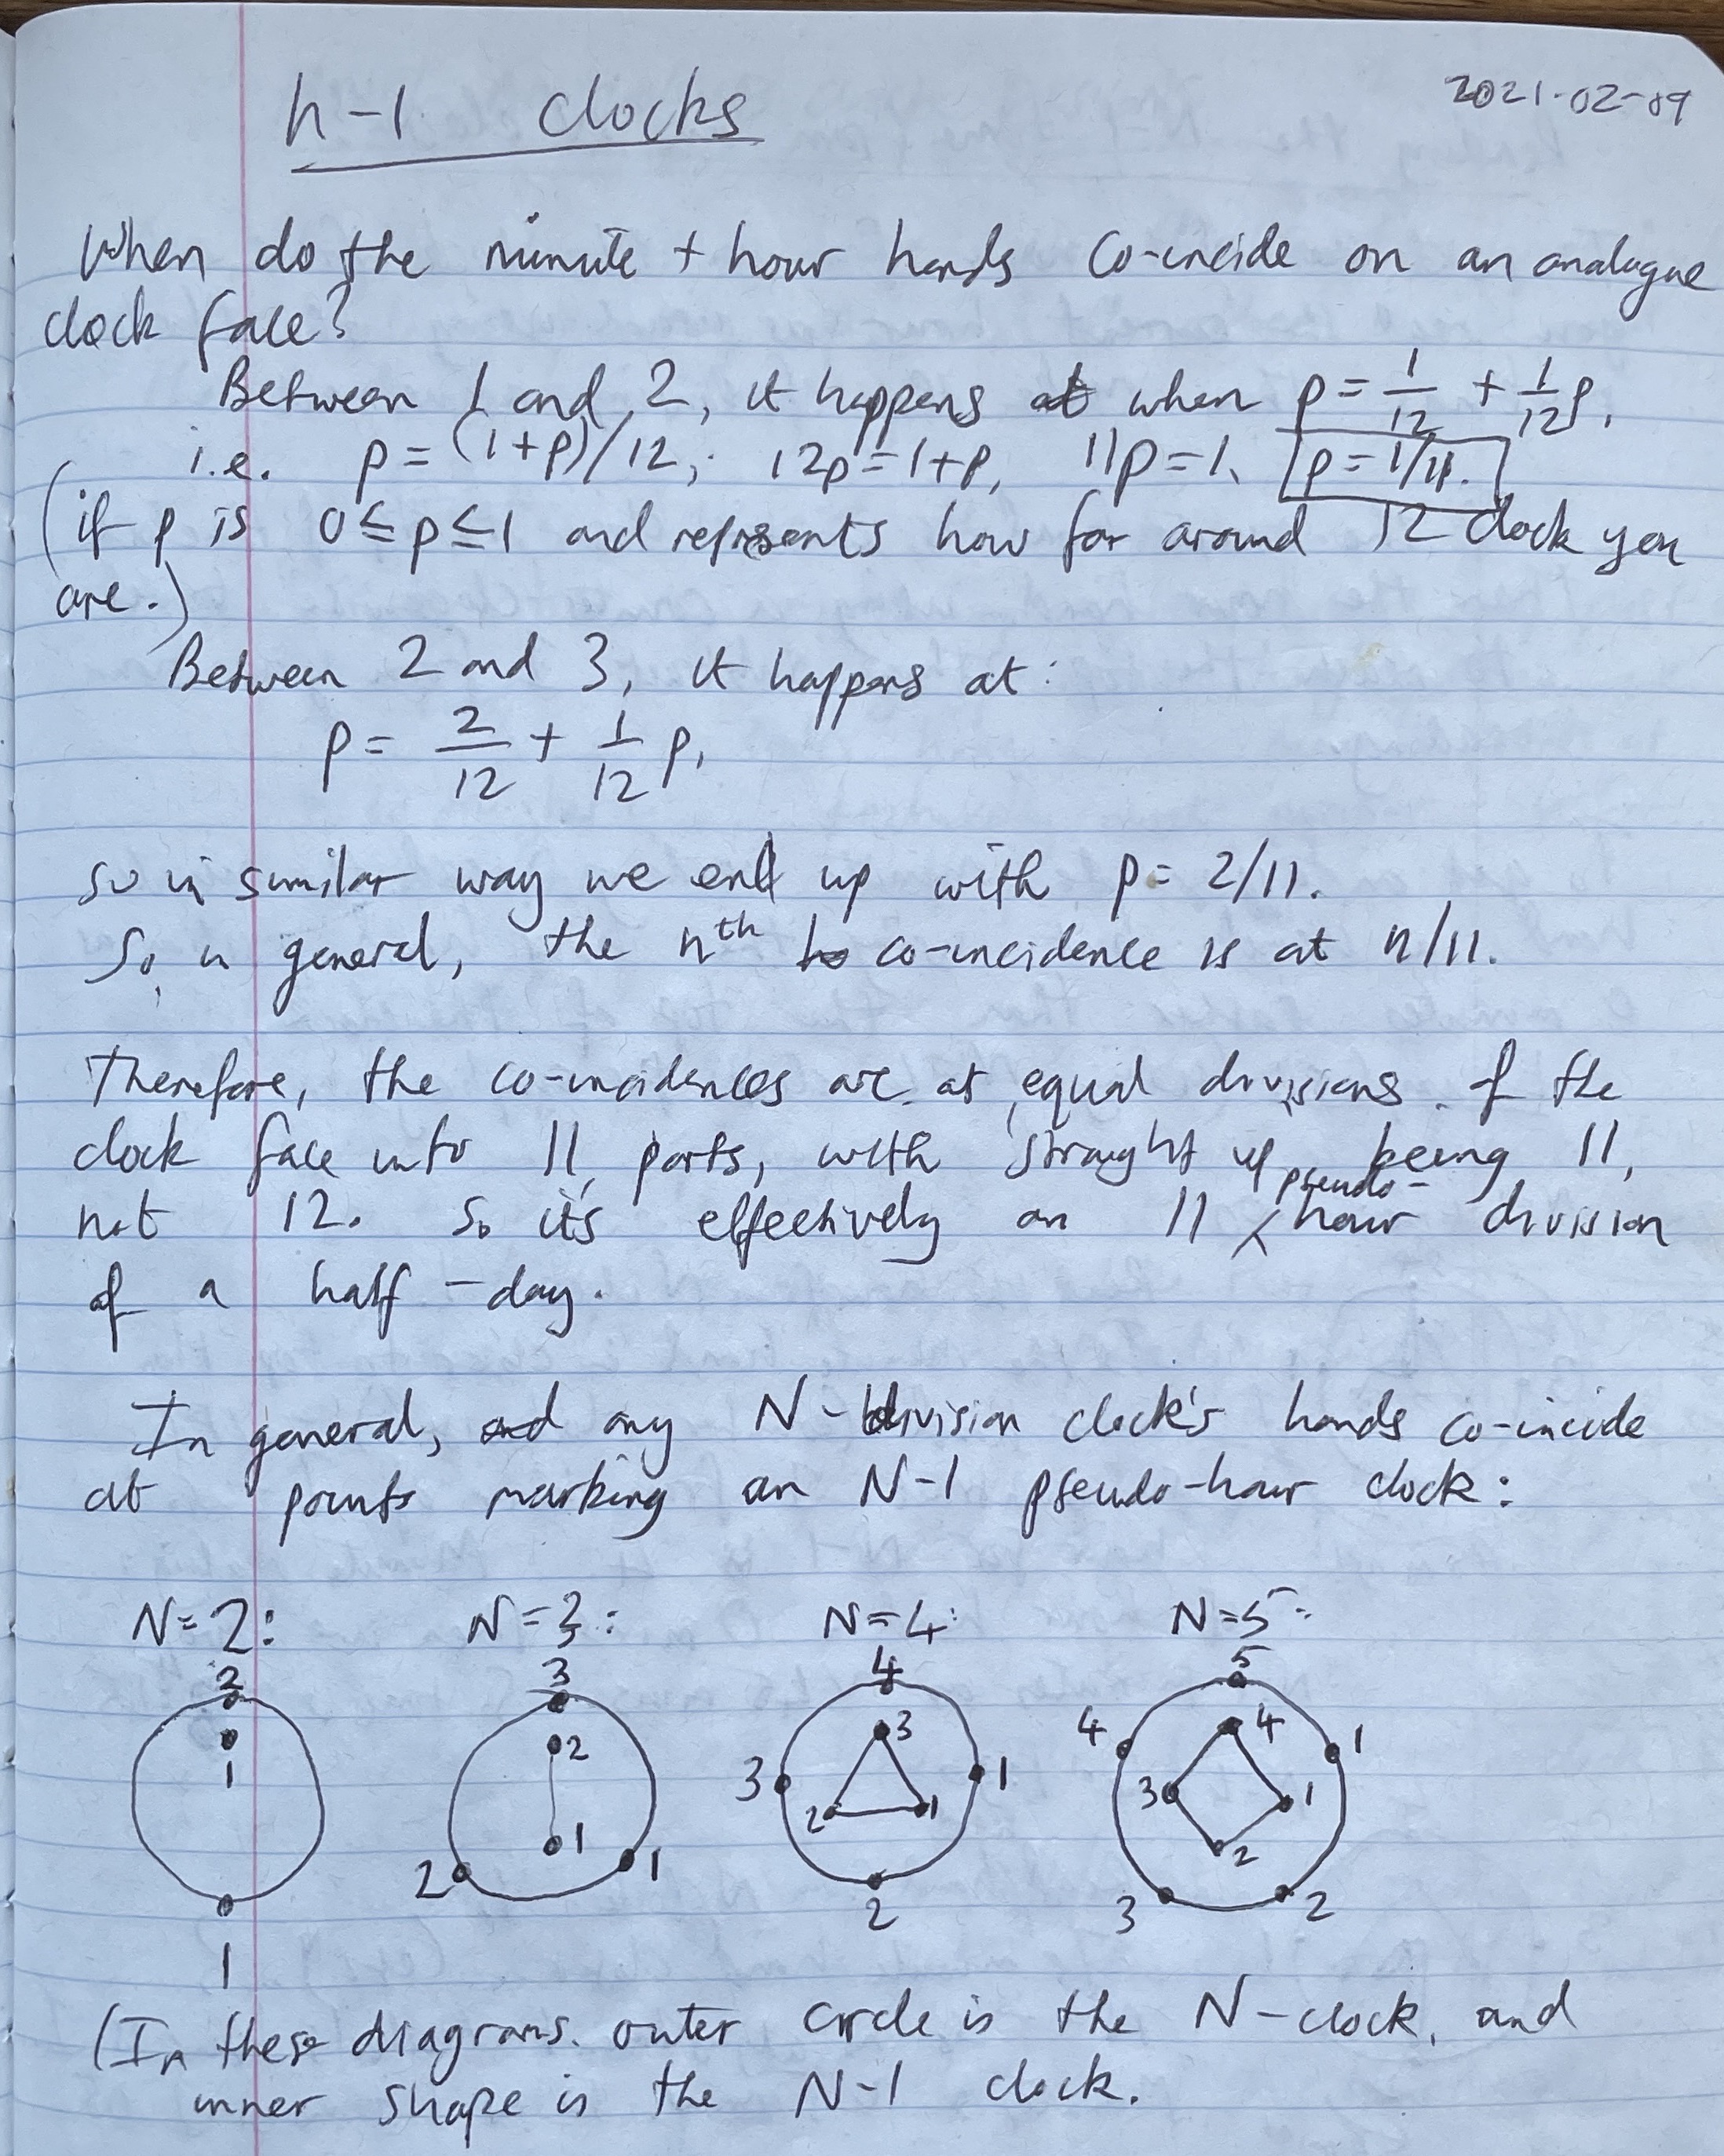 n-1 clocks
2021-02-09
When do the minute + hour hands co-incide on an analogue
clock face?
Between 1 and 2, it happens at when p = 1/12 + 1/12 p,
i.e. p = (1+p)/12, 12p = 1+p, 11p = 1, p = 1/11.
(if p is 0 ≤ p ≤ 1 and represents how far around 12 clock you
are.)
Between 2 and 3, it happens at:
p = 2/12 + 1/12 p,
so in similar way we end up with p = 2/11.
So, in general, the nth co-incidence is at n/11.
Therefore, the co-incidences are at equal divisions of the
clock face into 11 parts, with straight up being 11,
not 12. So it's effectively an 11 pseudo-hour division
of a half-day.
In general, and any N-division clock's hands co-incide
at points marking an N-1 pseudo-hour clock:
N=2: N=3: N=4: N=5:
2 3 4 5
1 2 3 4 4 1
3 1 2 1 3 1
1 2 1 2
2 3 2
1
(In these diagrams. outer circle is the N-clock, and
inner shape is the N-1 clock.